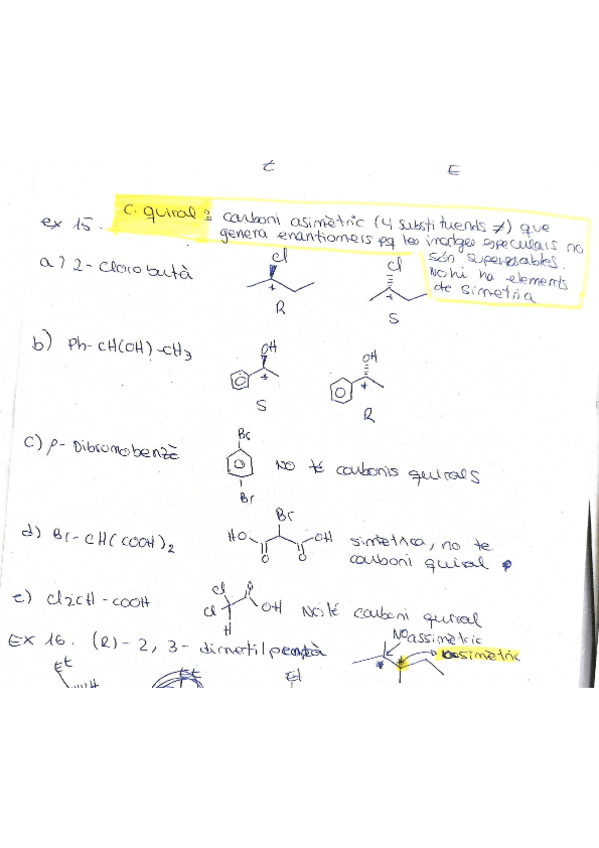 t E
ex 15. C. quiral : carboni asimètric (4 substituents ≠) que
genera enantiomers pq les imatges especulars no
són superposables.
No hi ha elements
de simetria
a) 2-clorobutà
Cl
Cl
*
*
R
S
b) Ph-CH(OH)-CH3
OH
OH
*
*
S
R
c) p-Dibromobenzè
Br
Br
NO té carbonis quirals
d) Br-CH(COOH)2
Br
HO
OH
O
O
simètrica, no te
carboni quiral
e) Cl2CH-COOH
Cl
Cl
H
O
OH
No té carboni quiral
EX 16. (R)-2,3-dimetilpentà
No assimetric
assimètric
*
*
Et
H
Et
Et